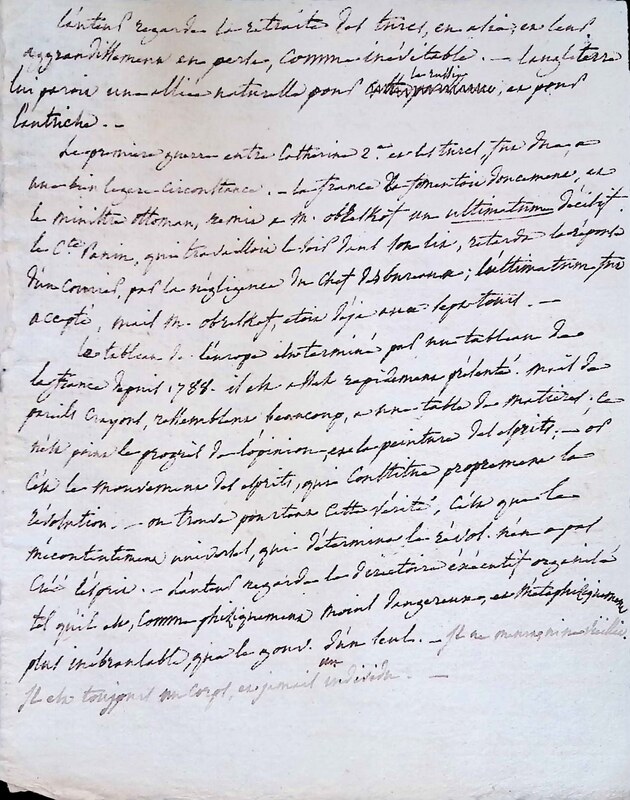 l'auteur regarde la retraite des turcs, en asie, en leur
aggrandissement en perse, comme inévitable. — l'angleterre
lui paroit une alliée naturelle pour la russie, et pour
l'autriche. —
La première guerre entre Catherine 2.e et les turcs, fut due, a
une bien legere circonstance. — la france la fomentoit doucement, et
le ministre ottoman, remit a m. obreskof un ultimatum décisif.
le C.te Panin, qui travailloit le soir dans son lit, retarda la réponse
d'un courier, par la négligence du chef des bureaux ; l'ultimatum fut
accepté, mais m. obreskof, etoit déja aux sept tours. —
le tableau de l'europe est terminé par un tableau de
la france depuis 1788. il est assez rapidement présenté. mais de
pareils crayons, ressemblent beaucoup, a une table de matières. ce
n'est point le progrès de l'opinion, et la peinture des esprits. — or
c'est le mouvement des esprits, qui constitue proprement la
révolution. — on trouve pourtant cette vérité, c'est que le
mécontentement universel, qui détermina la révol. n'en a pas
créé l'esprit. — l'auteur regarde le directoire exécutif organisé
tel qu'il est, comme phisiquement moins dangereux, et métaphisiquement
plus inébranlable, que le gouv. d'un seul. — il ne meurt ni ne vieillit.
il est toujours un corps, et jamais un individu. —